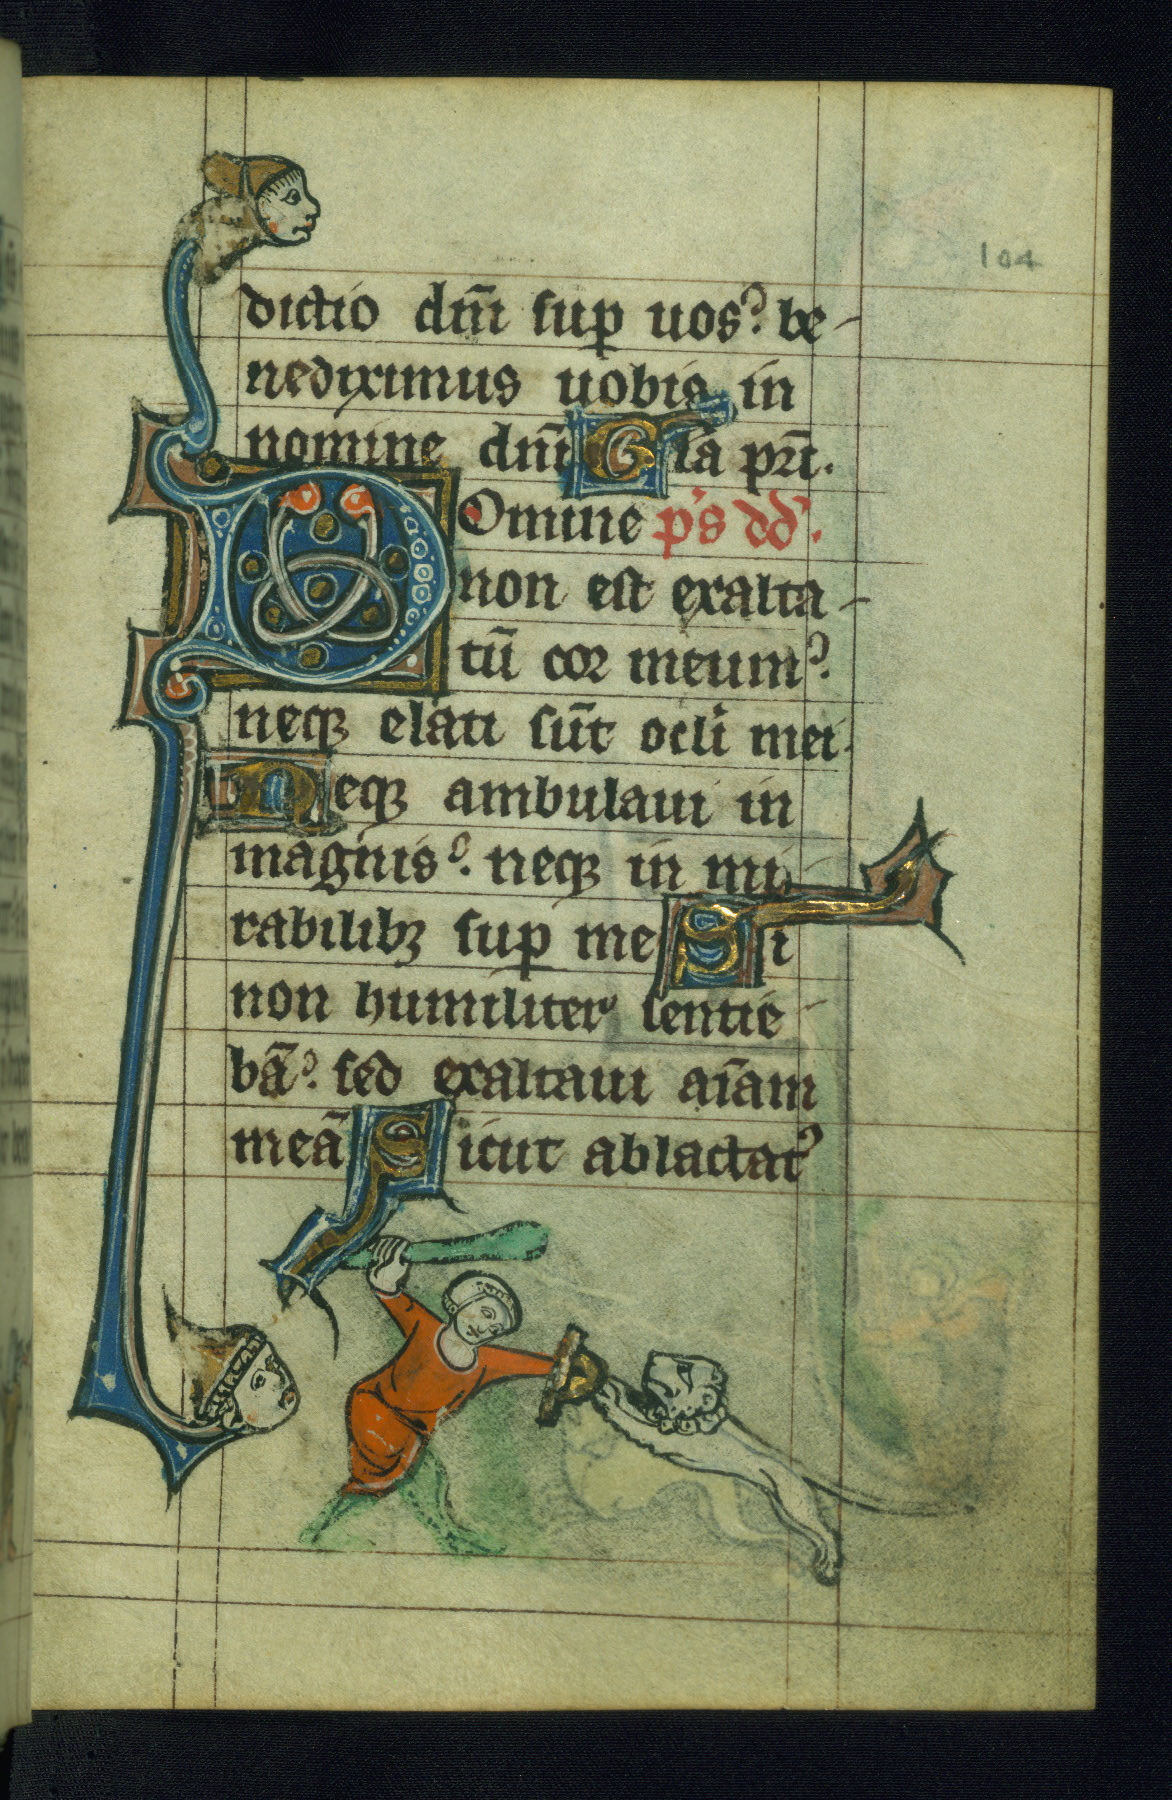 104
dictio dn̄i sup uos? be-
nediximus uobis in
nomine dn̄i Gl̄a pr̄i.
Domine ps dd.
non est exalta-
tū cor meum?
neqꝫ elati sūt ocl̄i mei.
Neqꝫ ambulaui in
magnis? neqꝫ in mi
rabilibꝫ sup me Si
non humiliter sentie
bā? sed exaltaui aīam
meā Sicut ablactat᾿